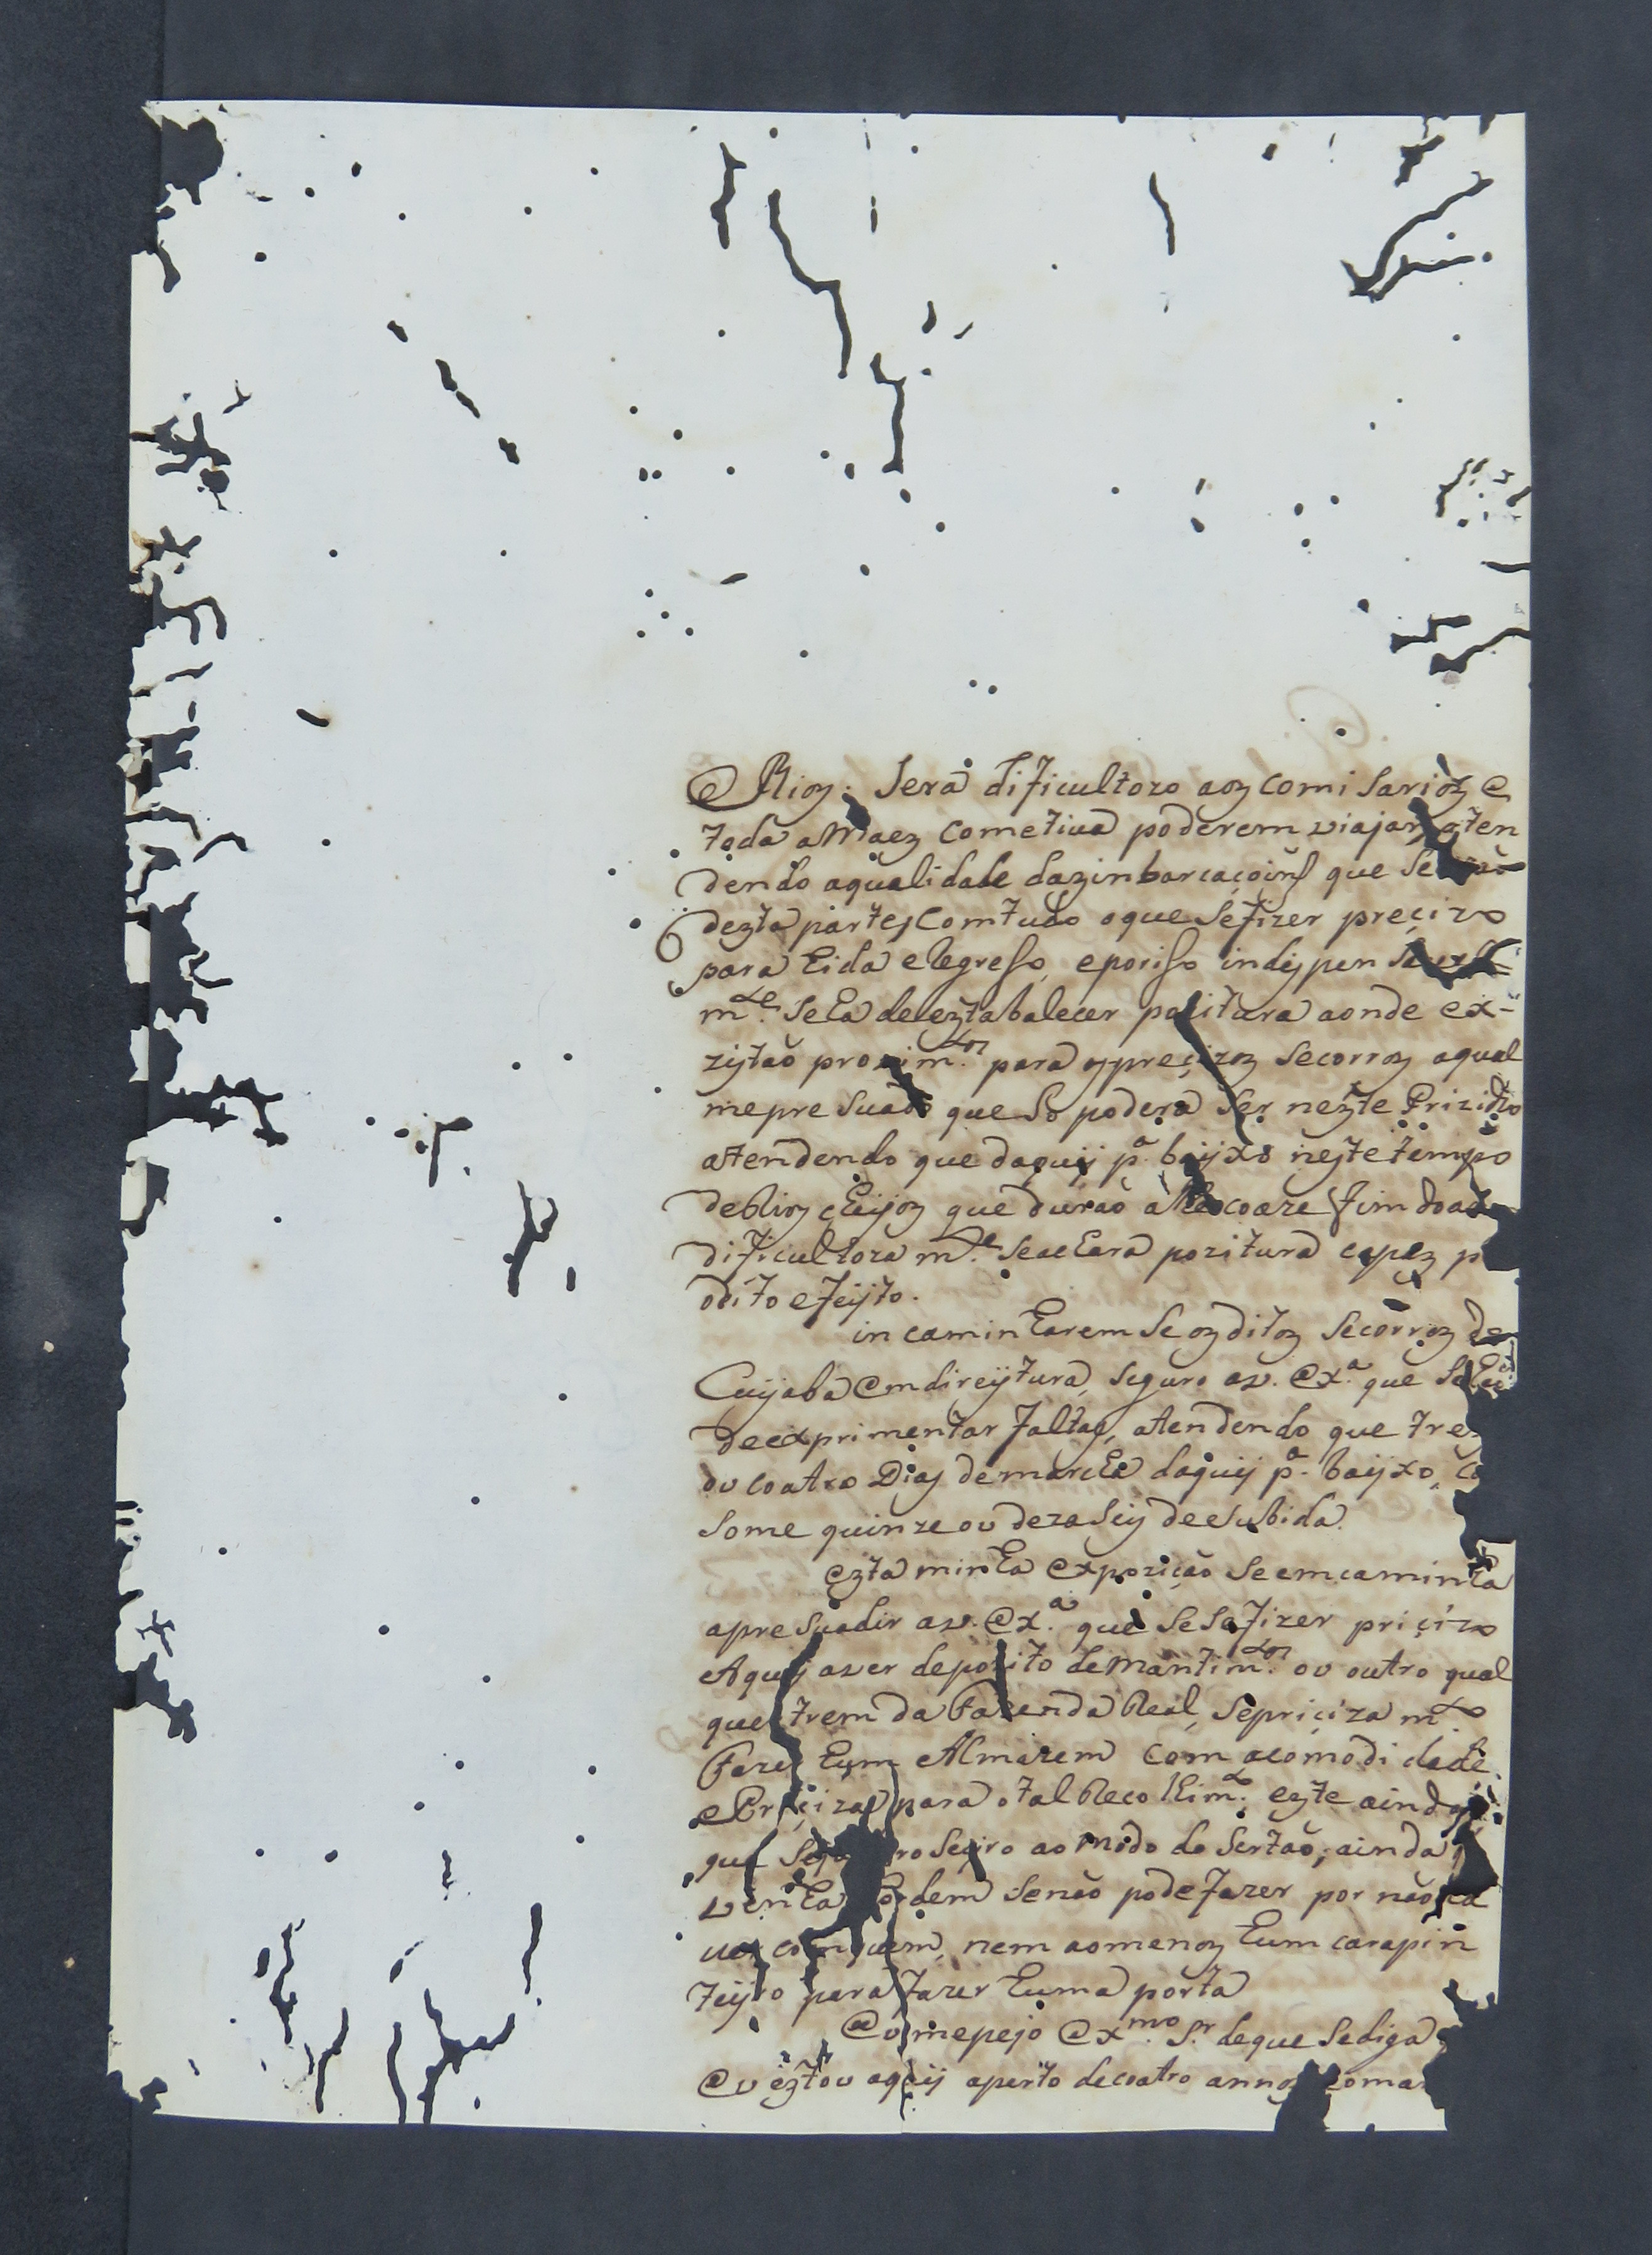 e Rios. Será dificultozo aos comisarios e
toda a maes cometiva poderem viajar, aten
dendo aqualidade das inbarcaçoins que se
desta partes Comtudo oque se fizer preçizo
para hida eRegreso, eporiso indispen
m.te se ha de estabalecer pozitura aonde ex-
zistão prozim.tos para os preçizos secorros aqual
mepresuado que só poderá ser neste Prizidio
atendendo que daquij p.a baijxo neste tempo
de Rios cheijos que durão athe coaze fim do
dificultoza m.te se achara pozitura capas p
odito efeijto.
in caminharem se os ditos secorros de
Cuijabá em direijtura, seguro a v. Ex.a que se
de exprimentar faltas, atendendo que tres
ou coatro Dias de marcha daquij p.a baijxo,
some quinze ou dezaseis de esubida.
esta minha expozição se emcaminha
apresuadir a v. Ex.a que se se fizer priçizo
Aquij aver depozito de mantim.tos ou outro qual
quer trem da Fazenda Real, sepriçiza m.to
Fazer hum Almazem com acomodidade
e Priçizas para o tal Recolhim.to este ainda
que Seja seg ro ao modo do Sertão; ainda
venha ordem senão pode fazer por não
ver comquem, nem aomenos hum carapin
teijro para fazer huma porta
Eu mepejo Ex.mo S.r de que sediga
Eu estou aquij aperto de coatro annos